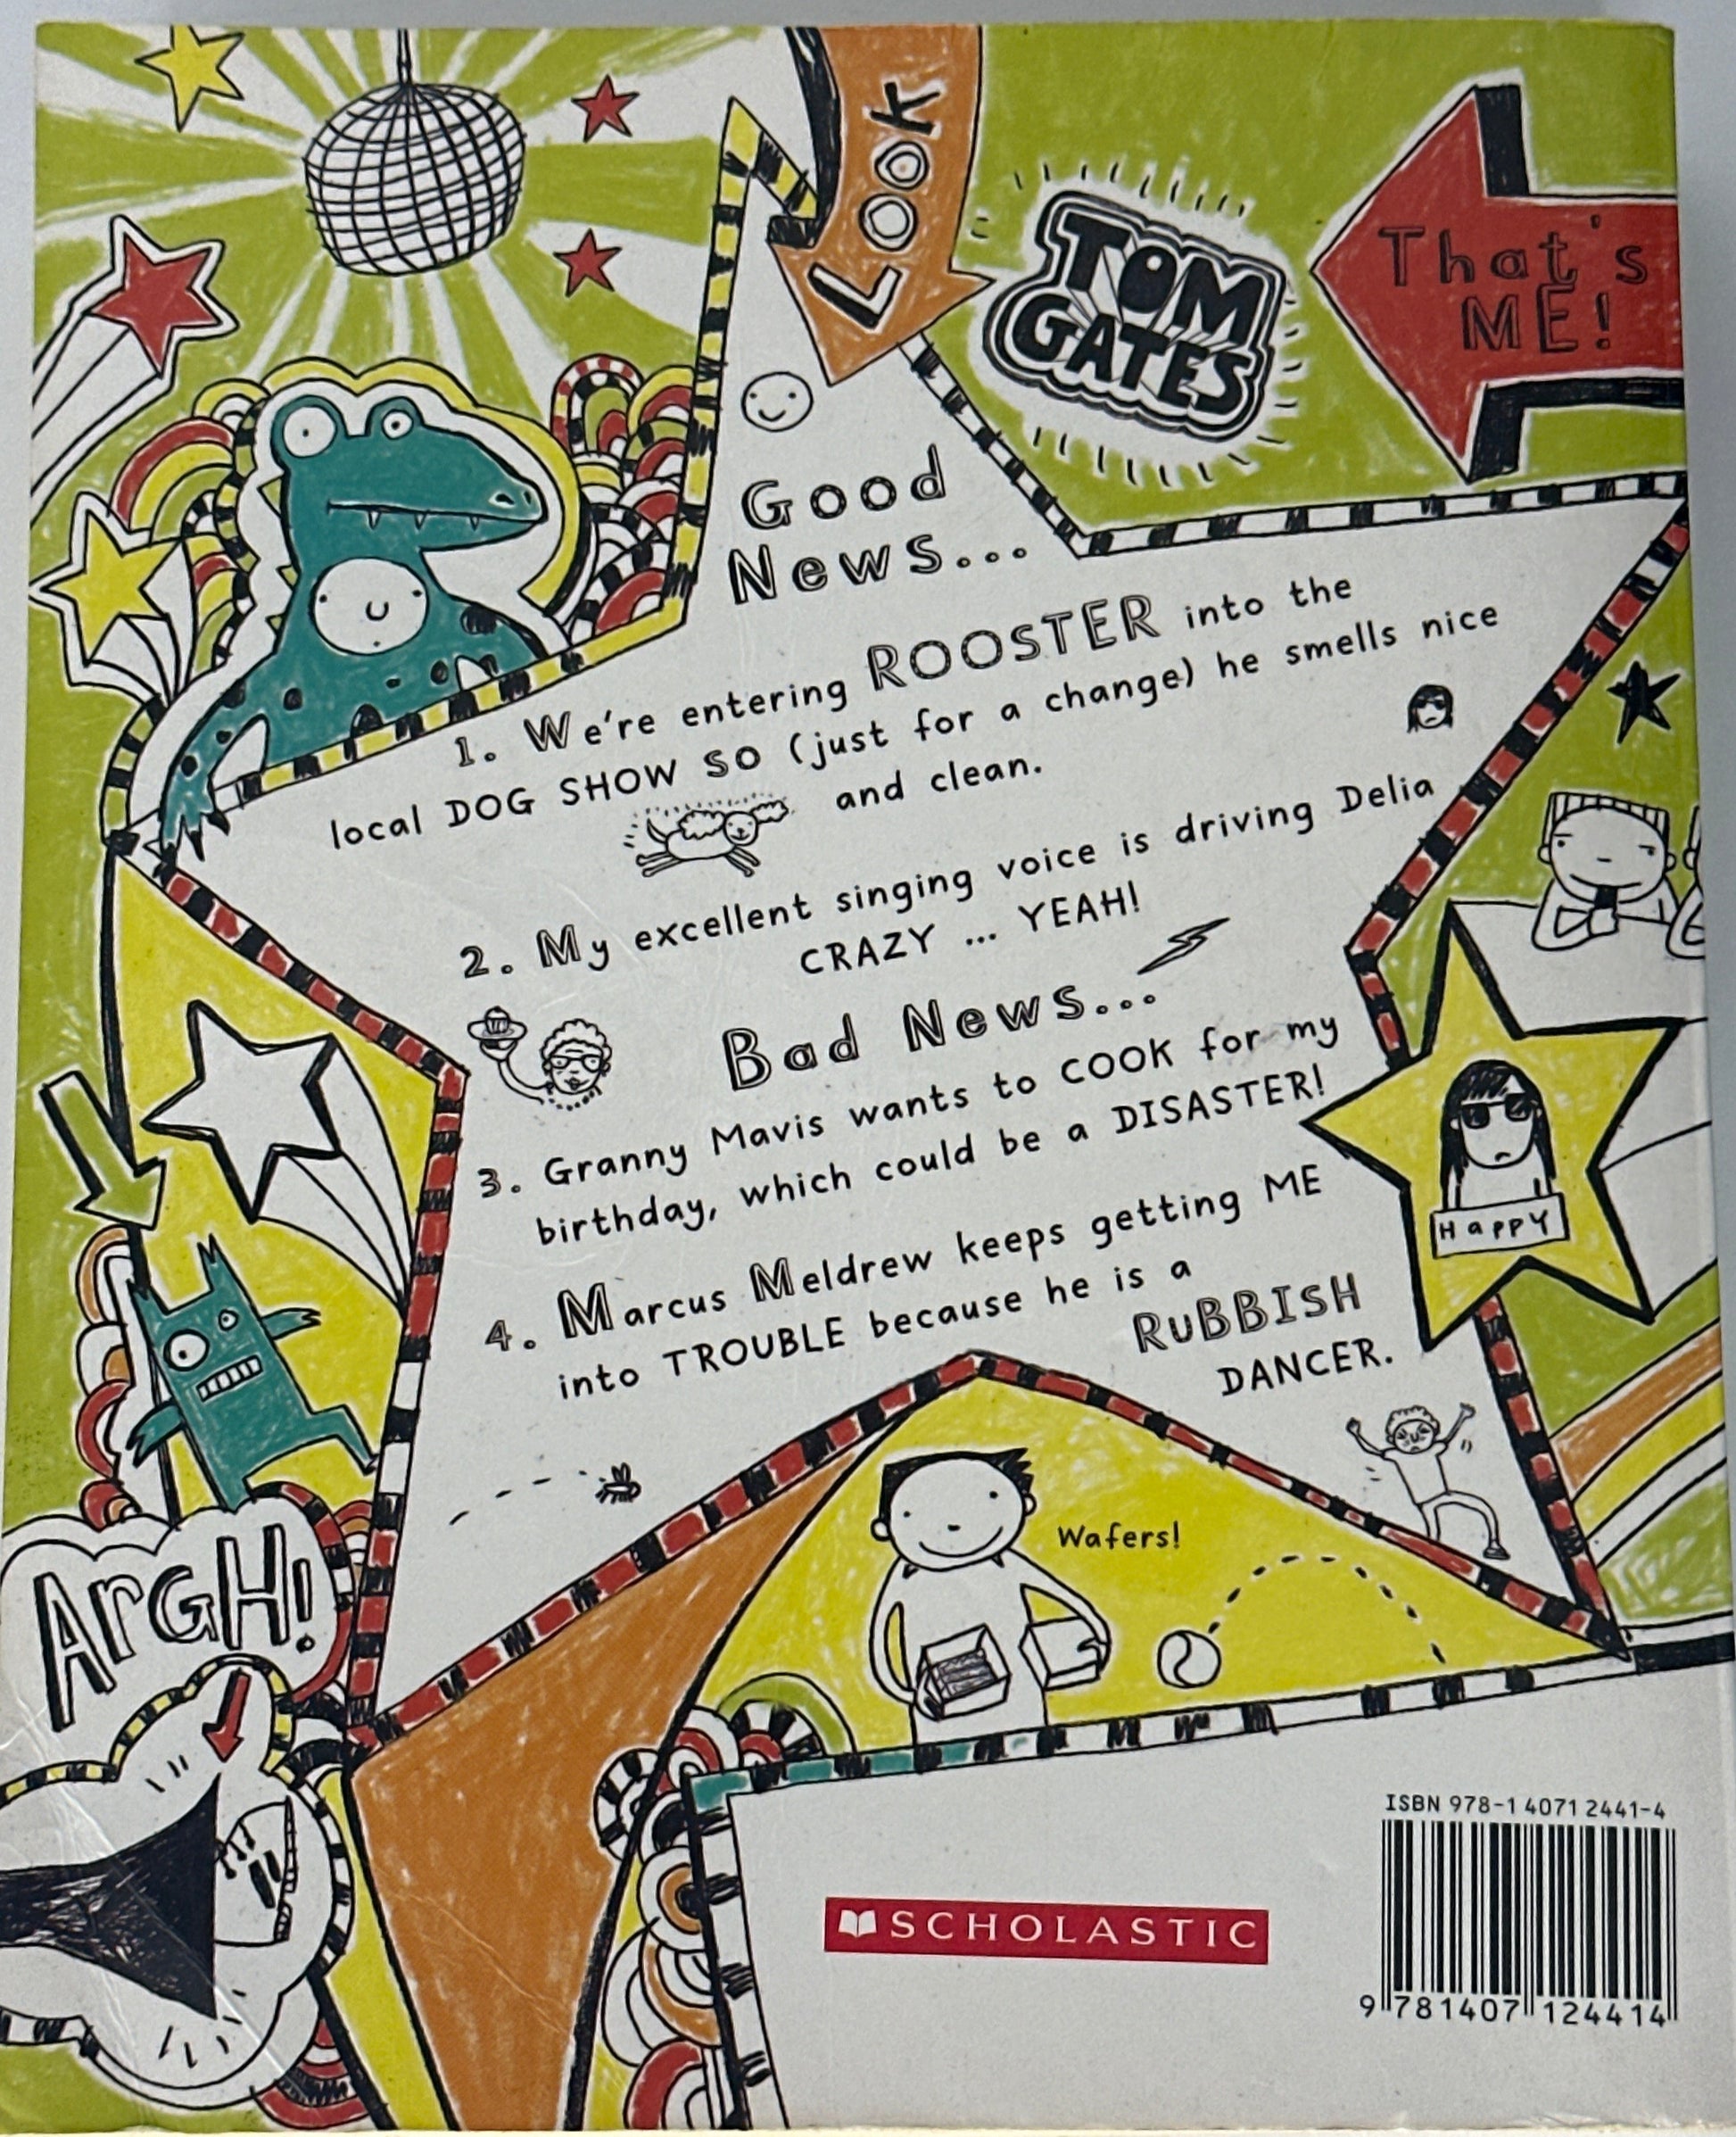 Look
TOM
GATES
That's
ME!
Good
News...
1. We're entering ROOSTER into the
local DOG SHOW SO (just for a change) he smells nice
and clean.
2. My excellent singing voice is driving Delia
CRAZY ... YEAH!
Bad News...
3. Granny Mavis wants to COOK for my
birthday, which could be a DISASTER!
4. Marcus Meldrew keeps getting ME
into TROUBLE because he is a
RuBBISH
DANCER.
Happy
ArGH!
Wafers!
ISBN 978-1 4071 2441-4
SCHOLASTIC
9 781407 124414